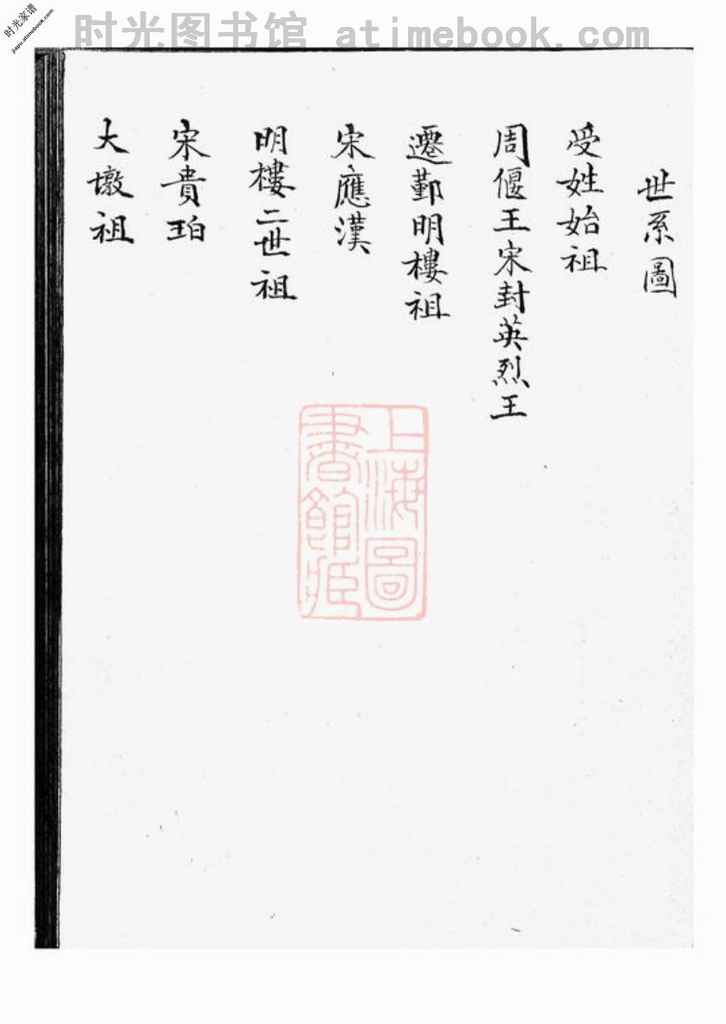 时光图书馆 atimebook.com
时光家谱
jiapu.atimebook.com
世系圖
受姓始祖
周偃王宋封英烈王
遷鄞明樓祖
宋應漢
明樓二世祖
宋貴珀
大墩祖
上海圖
書館藏